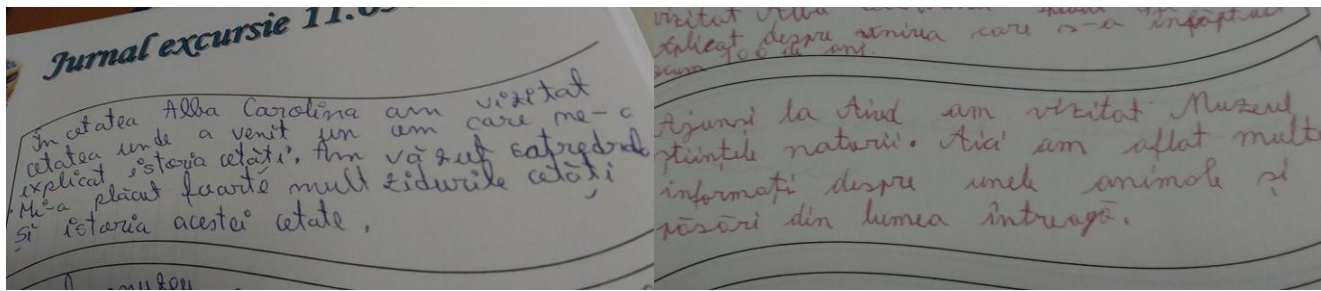 Jurnal excursie 11.05
În cetatea Alba Carolina am vizitat
cetatea unde a venit un om care ne-a
explicat istoria cetăți. Am văzut catedrale
Mi-a plăcut foarte mult zidurile cetăți
și istoria acestei cetate.
vizitat Alba
explicat despre unirea care s-a înfăptuit
acum 100 de ani.
Ajunși la Aiud am vizitat Muzeul
științele naturii. Aici am aflat multe
informați despre unele animale și
păsări din lumea întreagă.